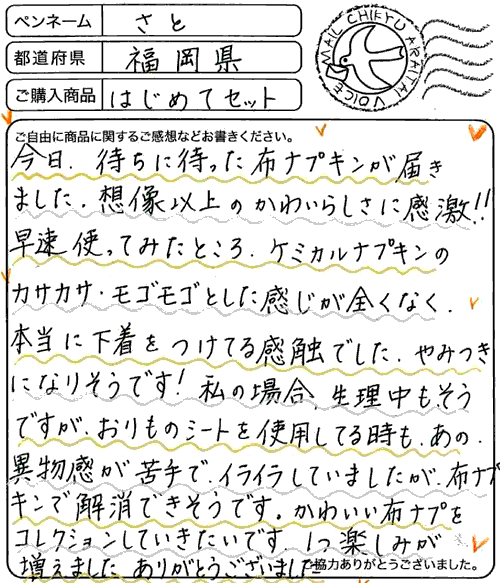 ペンネーム さと
都道府県 福岡県
ご購入商品 はじめてセット
MAIL CHIEKYU ARAITAI VOICE
ご自由に商品に関するご感想などお書きください。
今日、待ちに待った布ナプキンが届き
ました。想像以上のかわいらしさに感激!!
早速使ってみたところ、ケミカルナプキンの
カサカサ・モゴモゴとした感じが全くなく、
本当に下着をつけてる感触でした。やみつき
になりそうです!私の場合、生理中もそう
ですが、おりものシートを使用してる時も、あの、
異物感が苦手で、イライラしていましたが、布ナプ
キンで解消できそうです。かわいい布ナプを
コレクションしていきたいです。1つ楽しみが
増えました ありがとうございました
協力ありがとうございました。